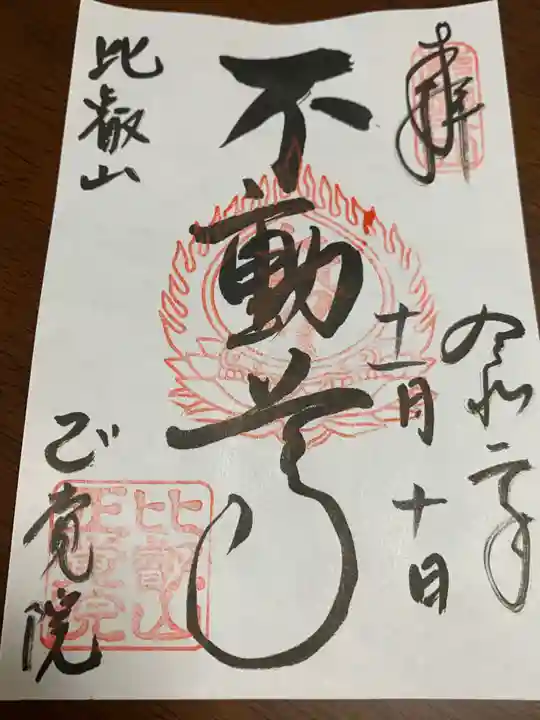 奉拝
令和二年
十一月十日
不動尊
比叡山
正覚院
比叡山
正覚院